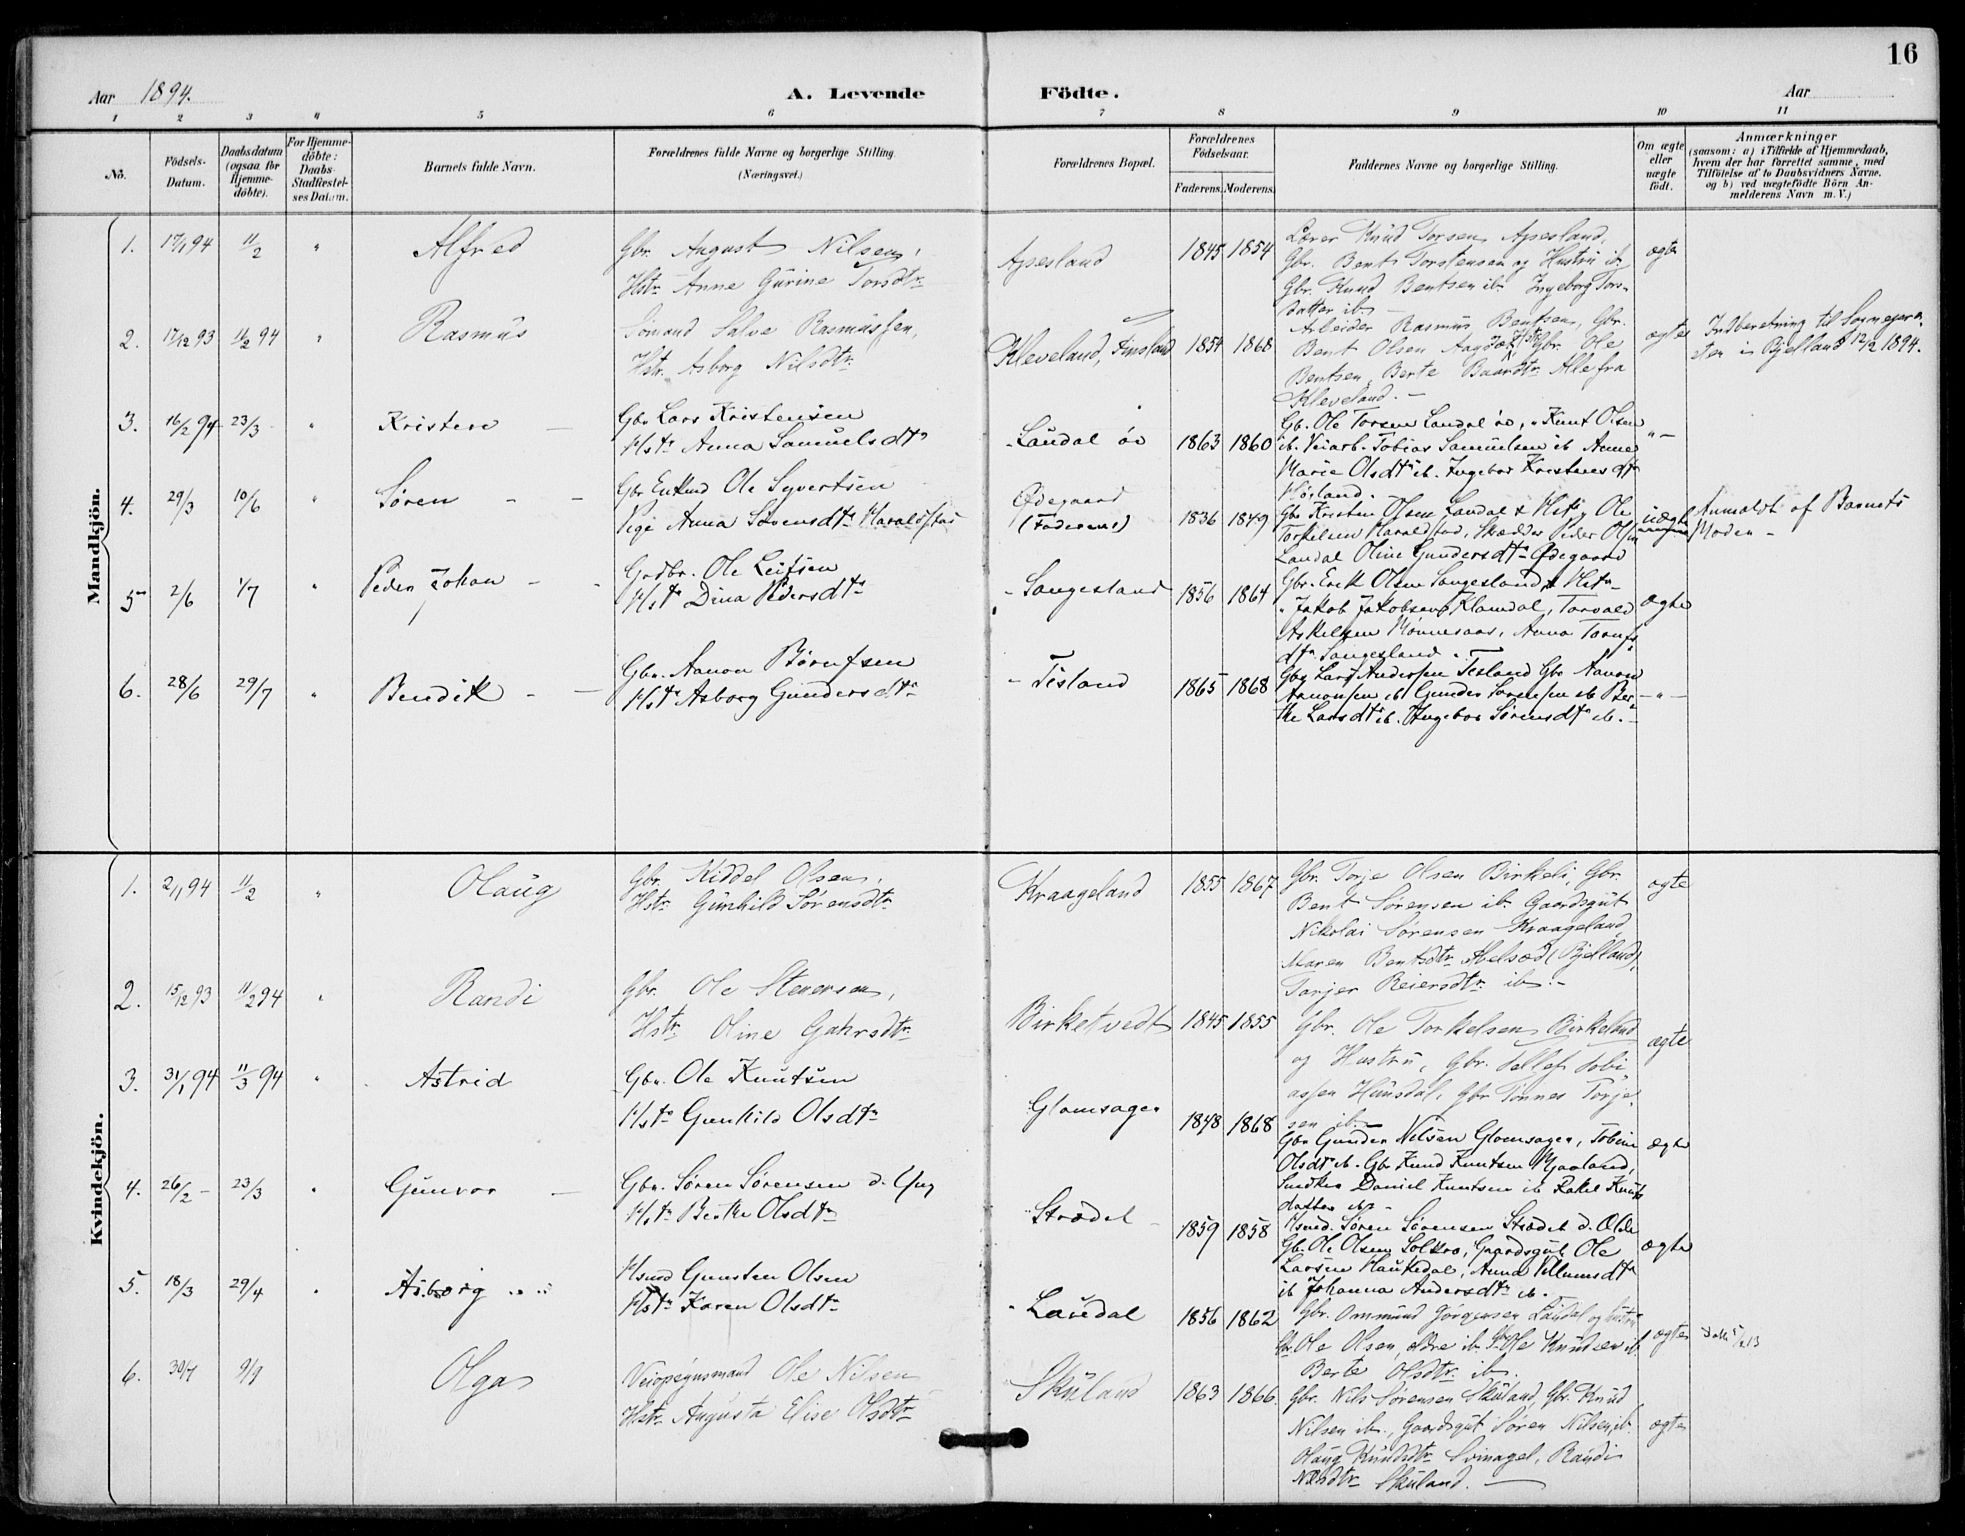 16
Aar 1894.
A. Levende Födte.
Aar
1 2 3 4 5 6 7 8 9 10 11
No.
Födsels-
Datum.
Daabsdatum
(ogsaa for
Hjemme-
döbte).
For Hjemme-
döbte:
Daabs-
Stadfæstel-
ses Datum.
Barnets fulde Navn.
Forældrenes fulde Navne og borgerlige Stilling.
(Næringsvei.)
Forældrenes Bopæl.
Forældrenes
Födselsaar.
Faderens. Moderens.
Faddernes Navne og borgerlige Stilling.
Om ægte
eller
uægte
födt.
Anmærkninger
(saasom: a) i Tilfælde af Hjemmedaab,
hvem der har forrettet samme, med
Tilföielse af to Daabsvidners Navne,
og b) ved uægtefödte Börn An-
melderens Navn m. V.)
Mandkjön.
1. 17/1 94 11/2 " Alfred
Gbr. August Nilsen,
Hstr. Anne Gurine Torsdtr.
Apesland 1845 1854
Lærer Knud Torsen Apesland,
Gbr. Bent Torstensen og Hustru ib.
Gbr. Knud Bentsen ib. Ingeborg Tors-
datter ib.
ægte
2. 17/12 93 11/2 94 " Rasmus
Sømand Salve Rasmussen,
Hstr. Asborg Nilsdtr.
Kleveland, Finsland 1854 1868
Arbeider Rasmus Bentsen, Gbr.
Bent Olsen Gbr. Ole
Bentsen, Berte Baardtr. Alle fra
Kleveland. -
ægte
Indberetning til Sognepræ-
sten i Bjelland 12/2 1894.
3. 16/2 94 23/3 " Kristen -
Gbr. Lars Kristensen
Hstr. Anna Samuelsdtr.
Laudal ø 1863 1860
Gb. Ole Torsen Laudal ø, " Knut Olsen
ib. Veiarb. Tobias Samuelsen ib. Anne
Marie Olsdtr. ib. Ingebor Kristensdtr
Høgland.
" -
4. 29/3 10/6 " Søren - -
Gbr. Enkmd Ole Syvertsen
Pige Anna Sørensdtr. Haraldstad
Ødegaard
(Faderens) 1836 1849
Gbr. Kristen Olsen Laudal & Hstr. Ole
Torkelsen Haraldstad, Skrædder Peder Olsen
Laudal Oline Gundersdtr. Ødegaard
uægte
Anmeldt af Barnets
Moder -
5 2/6 1/7 " Peder Johan - -
Grdbr. Ole Leifsen
Hstr. Dina Pedersdtr
Sangesland 1856 1864
Gbr. Erik Olsen Sangesland & Hstr.
" Jakob Jakobsen Klemdal, Torvald
Askelsen Mønnesaas, Anna
dtr. Sangesland.
ægte
6. 28/6 29/7 " Bendik - -
Gbr. Aanon Børufsen
Hstr. Asborg Gundersdtr
Tisland 1865 1868
Gbr. Lars Andersen Tesland Gbr. Aanon
Aanonsen ib. Gunder Sørensen ib. Ber-
the Larsdtr. ib. Ingebor Sørensdtr. ib. -
- " -
Kvindekjön.
1. 2/1 94 11/2 " Olaug
Gbr. Kiddel Olsen,
Hstr. Gunhild Sørensdtr.
Kraageland 1855 1867
Gbr. Torje Olsen Birkeli, Gbr.
Bent Sørensen ib. Gaardsgut
Nikolai Sørensen Kraageland,
Maren Bentsdtr. Abelsæd (Bjelland),
Torjer Reiersdtr. ib. -
ægte
2. 15/12 93 11/2 94 " Randi
Gbr. Ole Stenersen,
Hstr. Oline Gahrsdtr.
Birketvedt 1845 1855
Gbr. Ole Torkelsen Birkeland
og Hustru, Gbr. Tellef Tobi-
assen Hunsdal, Gbr. Tønnes Torje-
sen ib.
ægte
3. 31/1 94 11/3 94 " Astrid
Gbr. Ole Knutsen
Hstr. Gunhild Olsdtr
Glomsager 1848 1868
Gbr. Gunder Nilsen Glomsager, Tobine
Olsdtr. ib. Gbr. Knud Knutsen Myraland,
Snedker Daniel Knutsen ib. Rakel Knuts
datter ib. -
ægte
4. 26/2 - 23/3 " Gunvor -
Gbr. Søren Sørensen d. Yng
Hstr. Berthe Olsdtr
Strædet 1859 1858
Hsmd. Søren Sørensen Strædet d. Elde
Gb. Ole Olsen Solkro, Gaardsgut Ole
Larsen Haukedal, Anna
ib. Johanna Andersdtr. ib.
ægte
5. 18/3 29/4 " Asborg
Hsmd Gunsten Olsen
Hstr. Karen Olsdtr.
Laudal 1856 1862
Gbr. Ommund Jørgensen Laudal og hustru
Gbr. Ole Olsen, eldre ib. Gbr. Ole Knutsen ib.
Berte Olsdtr. ib.
ægte
6. 30/7 9/9 Olga
Veiopsynsmand Ole Nilsen
Hstr. Augusta Elise Olsdtr
Skuland 1863 1866.
Gbr. Nils Sørensen Skuland, Gbr. Knud
Nilsen ib., Gaardsgut Søren Nilsen ib.
Olaug Knudsdtr. Svinagel, Randi
Skuland. -
ægte